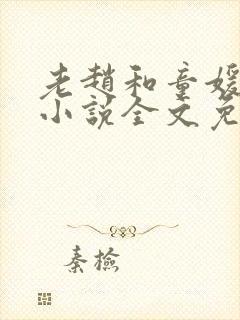 老趙和童媛
小說全文免
秦檢